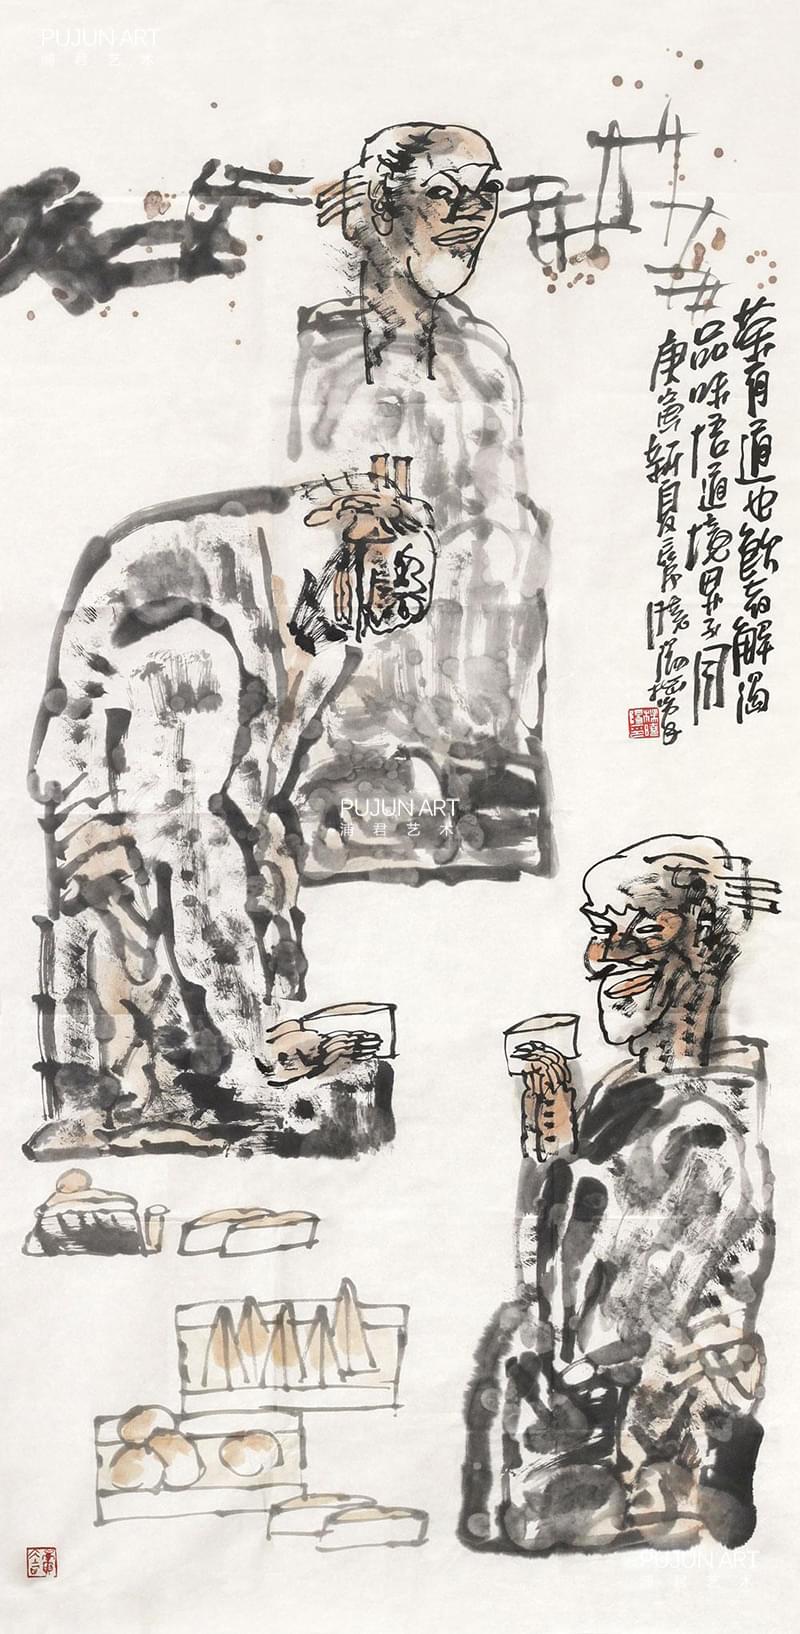 PUJUN ART
浦君艺术
茶有道也飲者解渴
品味悟道境界不同
庚寅新夏
PUJUN ART
浦君艺术
PUJUN ART
浦君艺术